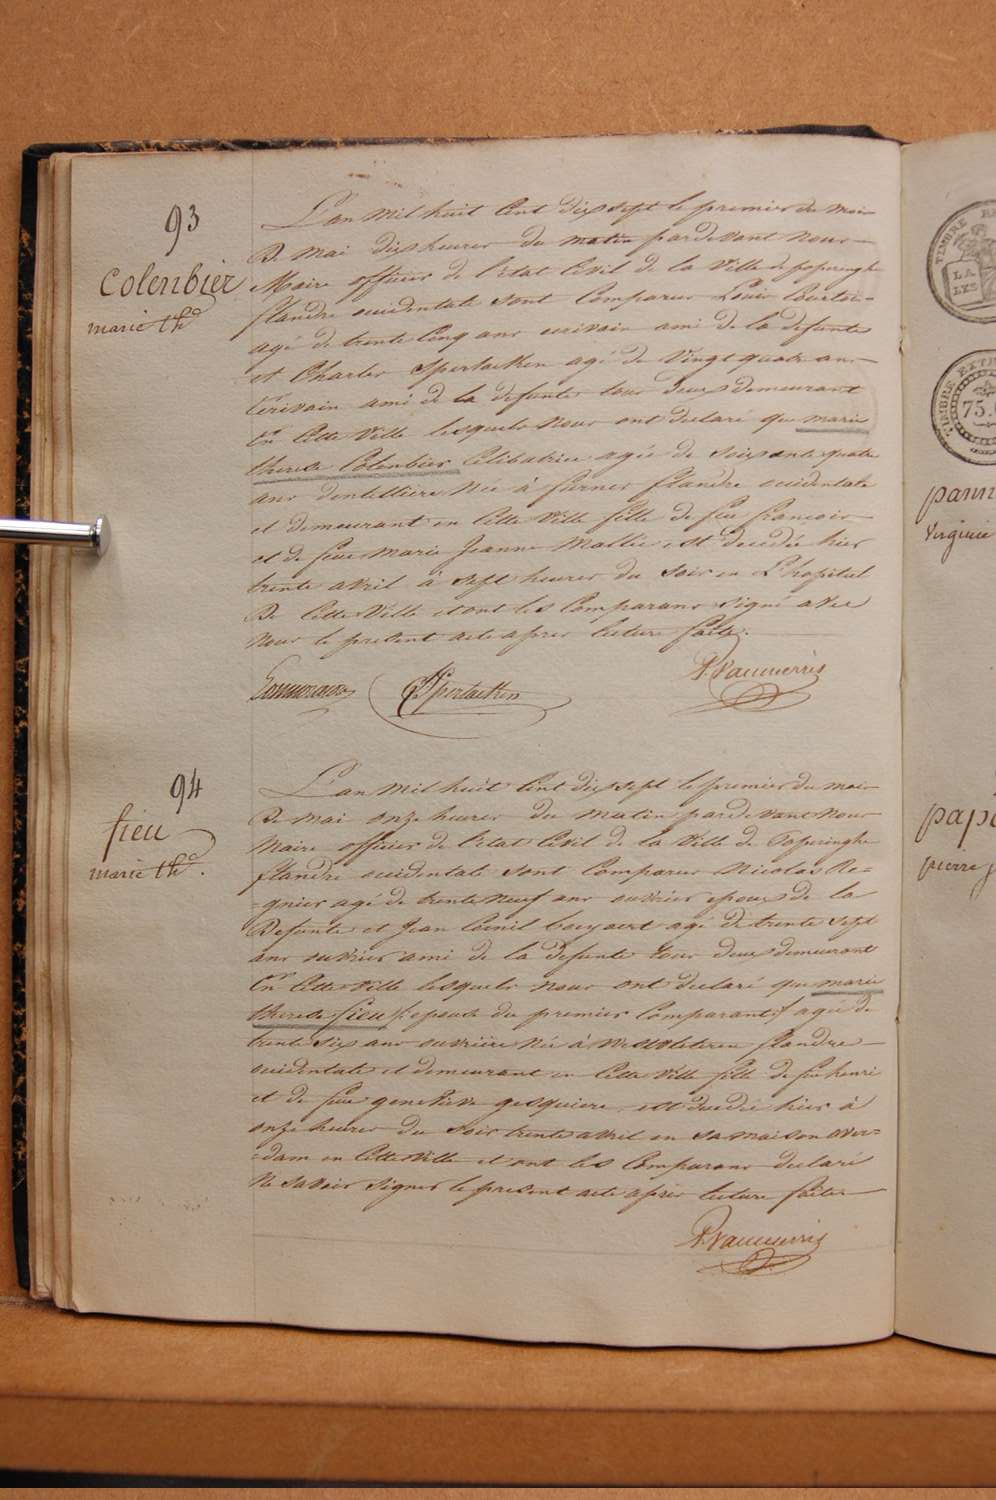 93
Colenbier
marie th.e
L'an mil huit Cent dix sept le premier du mois
De mai dix heures du matin pardevant nous
Maire officier de l'état Civil de la Ville de poperinghe
flandre occidentale sont Comparus Louis Courtois
agé de trente Cinq ans ecrivain ami de la defunte
et Charles Spertaelken agé de Vingt quatre ans
Ecrivain ami de la defunte tous deux demeurant
En Cette Ville lesquels nous ont declaré que marie
therese Colenbier Celibatrice agée de Soixante quatre
ans dentellière Née à furnes flandre occidentale
et demeurant en Cette Ville fille de feu françois
et de feue marie Jeanne Mallie, est decedée hier
trente avril à Sept heures du Soir en L'hopital
De Cette Ville et ont les Comparans signé avec
nous le present acte apres lecture faite.
Spertaelken
94
fieu
marie th.e
L'an mil huit Cent dix sept le premier du mois
De mai onze heures du matin pardevant nous
Maire officier de l'état Civil de la Ville de Poperinghe
flandre occidentale sont Comparus Nicolas Re=
=gnier agé de trente neuf ans ouvrier epoux de la
Defunte et Jean agé de trente sept
ans ouvrier ami de la defunte tous deux demeurant
En Cette Ville lesquels nous ont declaré que marie
therese fieu /: epouse du premier Comparant :/ agée de
trente Six ans ouvrière Née à Westvleteren flandre
occidentale et demeurant en Cette Ville fille de feu henri
et de feue genevieve gesquiere, est decedée hier à
onze heures du Soir trente avril en sa maison Over=
=dam en Cette Ville et ont les Comparans declaré
Ne Savoir Signer le present acte après lecture faite
TIMBRE
LA
LEX
TIMBRE EXTR
75.
Virginie
pierre